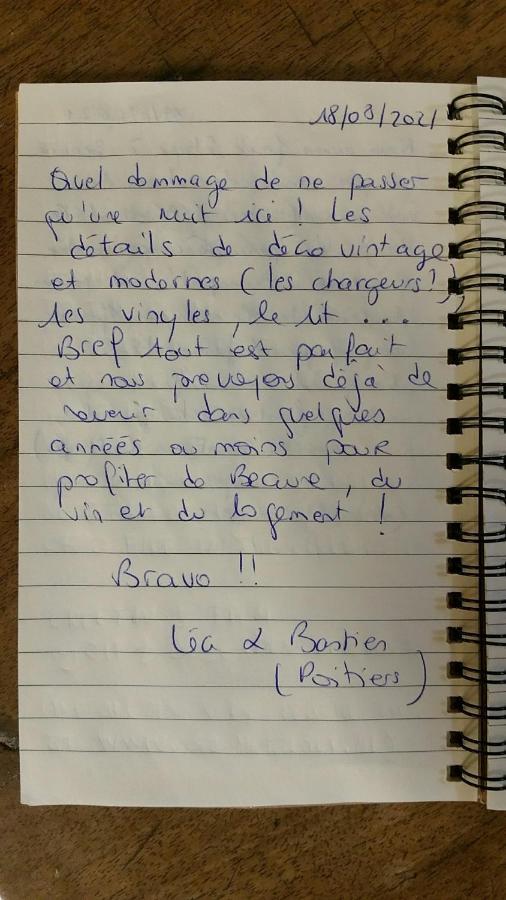 18/08/2021
Quel dommage de ne passer
qu'une nuit ici ! Les
détails de déco vintage
et modernes (les chargeurs !),
les vinyles, le lit ...
Bref tout est parfait
et nous prevoyons déjà de
revenir dans quelques
années ou moins pour
profiter de Beaune, du
vin et du logement !
Bravo !!
Léa & Bastien
(Poitiers)